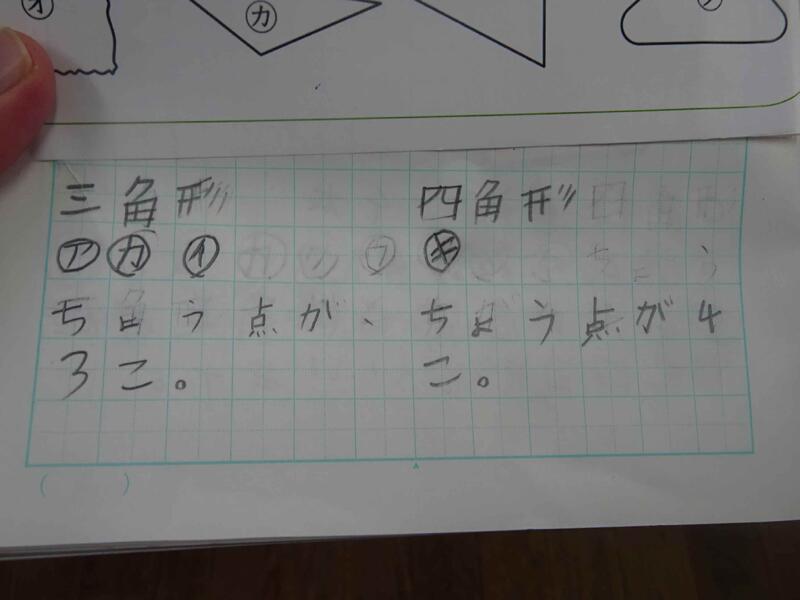 ㋔
㋕
三角形
㋐㋕㋑
ちょう点が、
3こ。
四角形
㋖
ちょう点が4
こ。